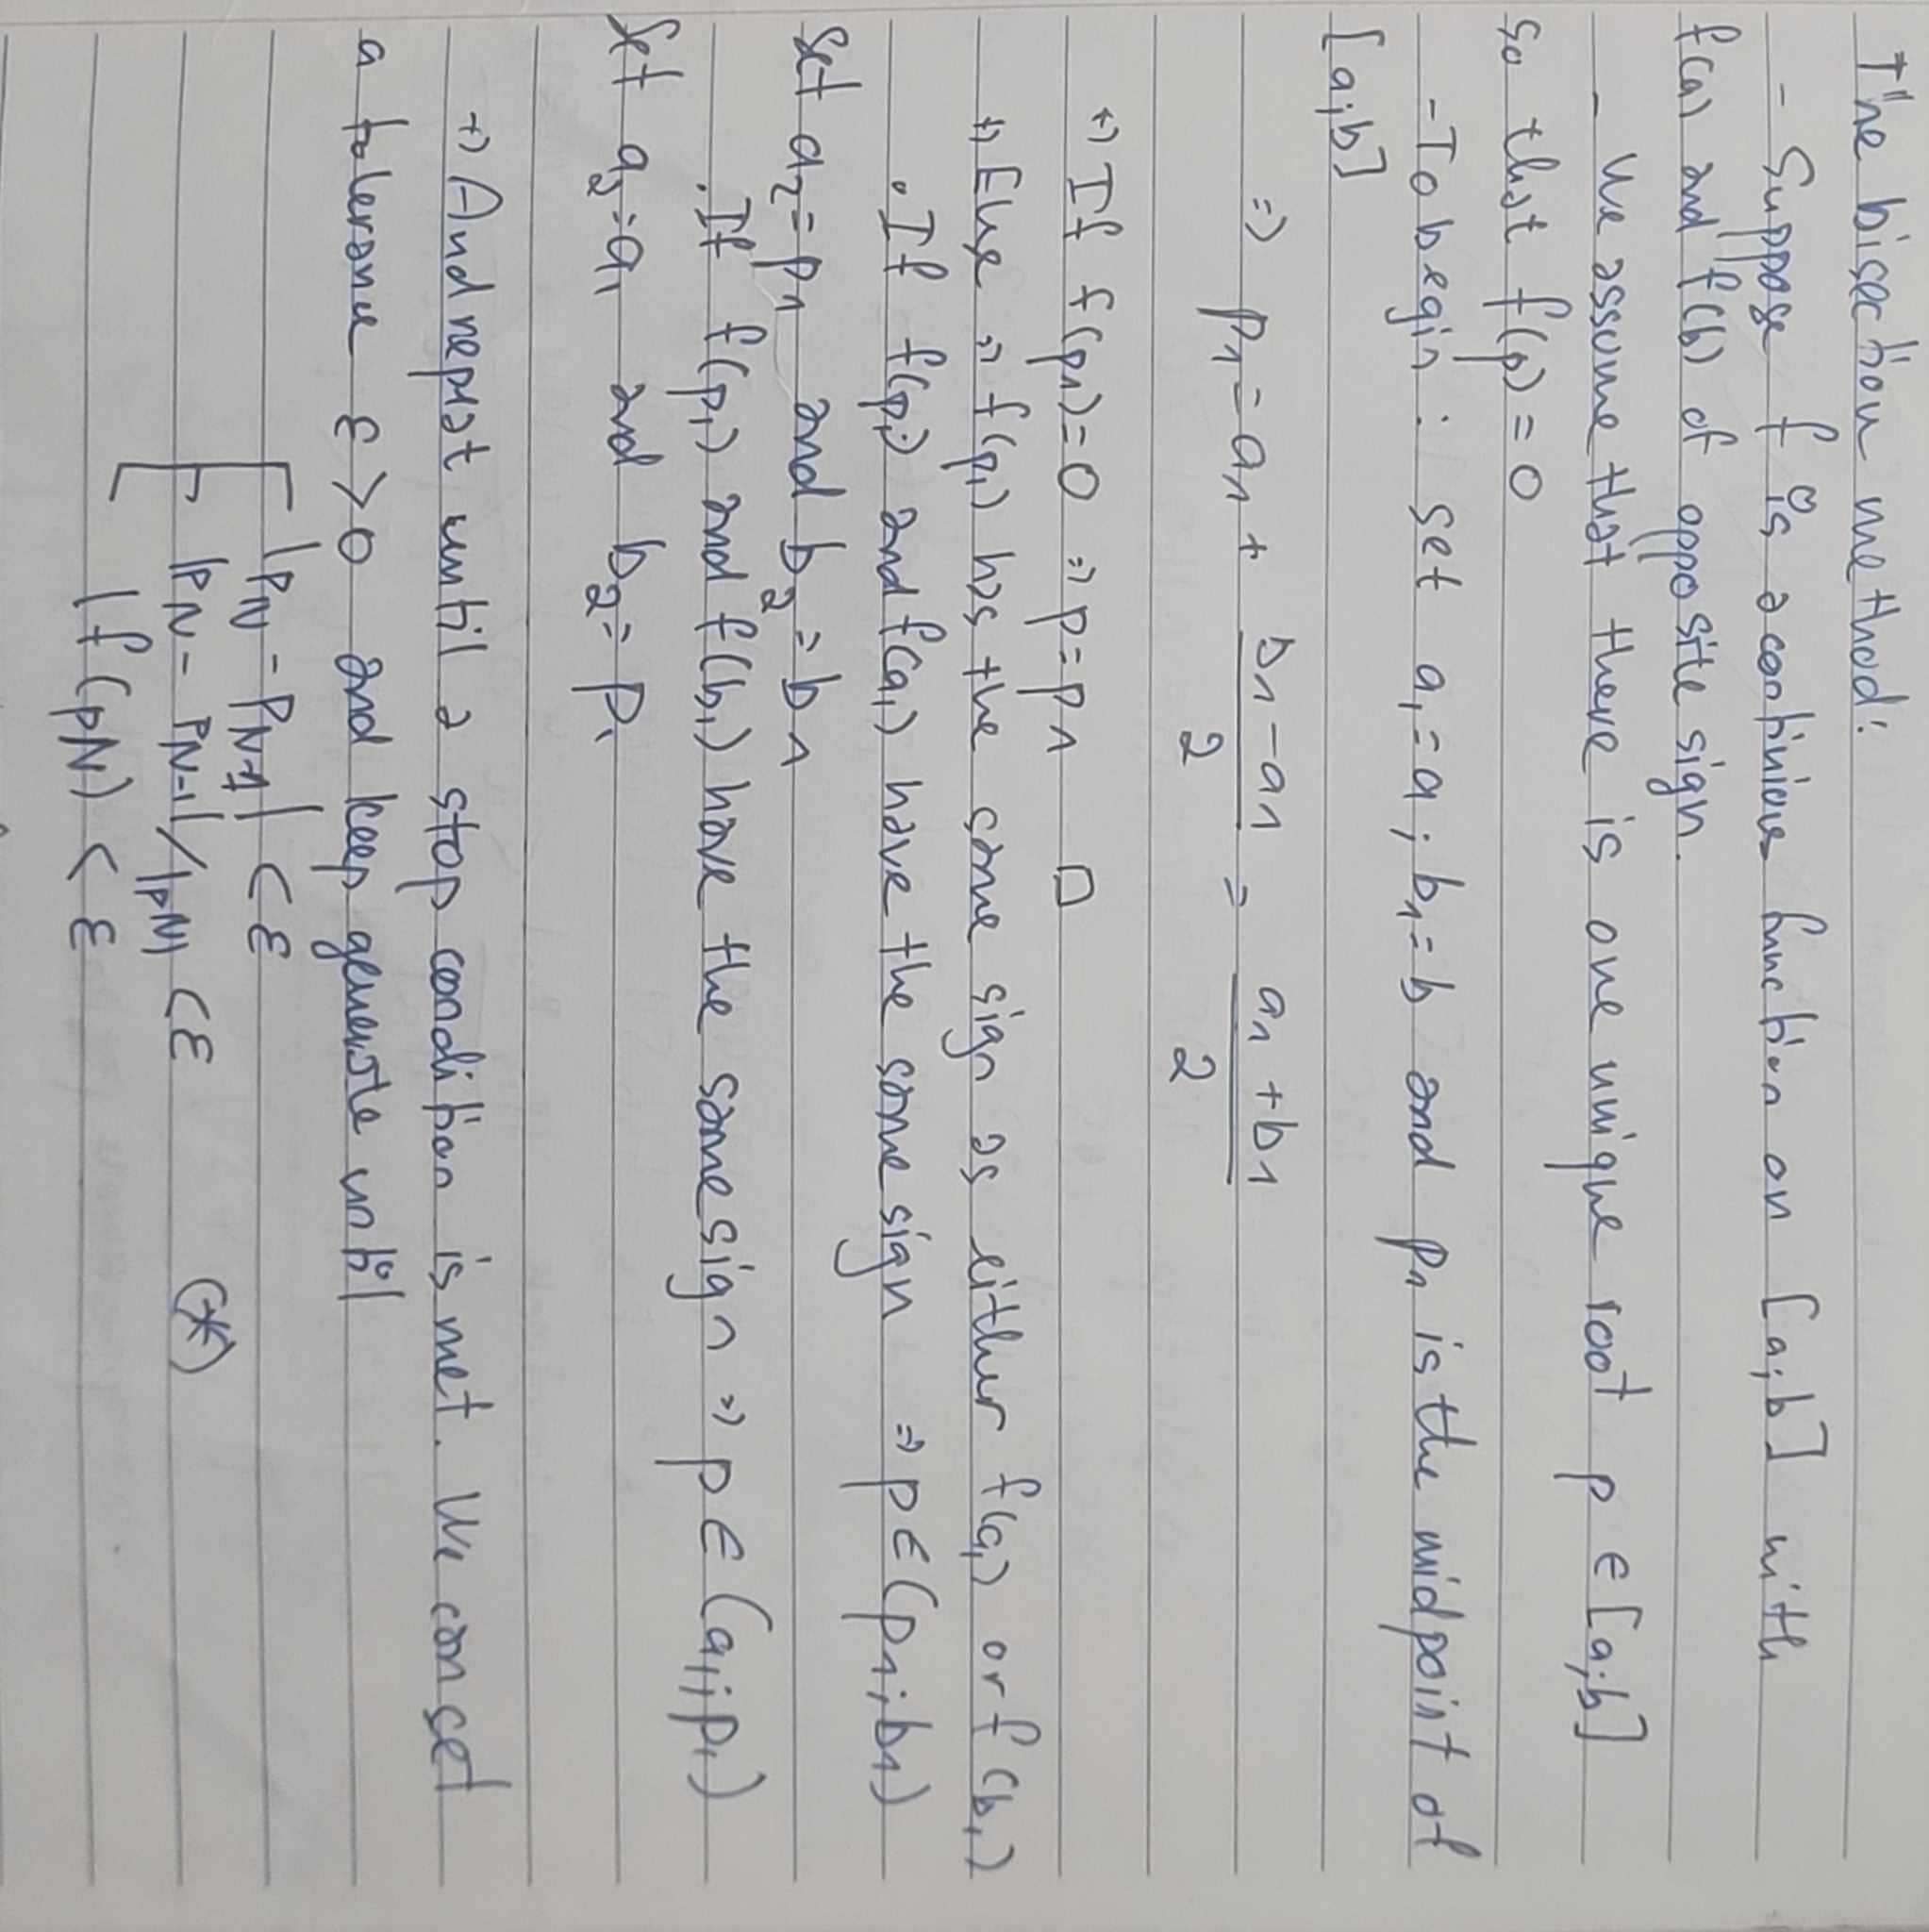 The bisection method:
- Suppose f is a continious function on [a;b] with
f(a) and f(b) of opposite sign.
- We assume that there is one unique root p ∈ [a;b]
so that f(p) = 0
- To begin : set a₁ = a ; b₁ = b and p₁ is the midpoint of
[a;b]
⇒ p₁ = a₁ + (b₁ - a₁)/2 = (a₁ + b₁)/2
+) If f(p₁) = 0 ⇒ p = p₁ □
+) Else ⇒ f(p₁) has the same sign as either f(a₁) or f(b₁)
. If f(p₁) and f(a₁) have the same sign ⇒ p ∈ (p₁; b₁)
Set a₂ = p₁ and b₂ = b₁
. If f(p₁) and f(b₁) have the same sign ⇒ p ∈ (a₁; p₁)
Set a₂ = a₁ and b₂ = p₁
+) And repeat until a stop condition is met. We can set
a tolerance ε > 0 and keep generate until
|pN - pN-1| < ε
|pN - pN-1| / |pN| < ε (*)
|f(pN) < ε